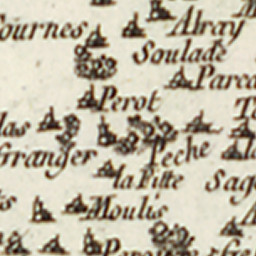 ournes
Alray
Soulade
Parca
Perot
las
Granger
Peche
la Pitte
Sag
Moulis